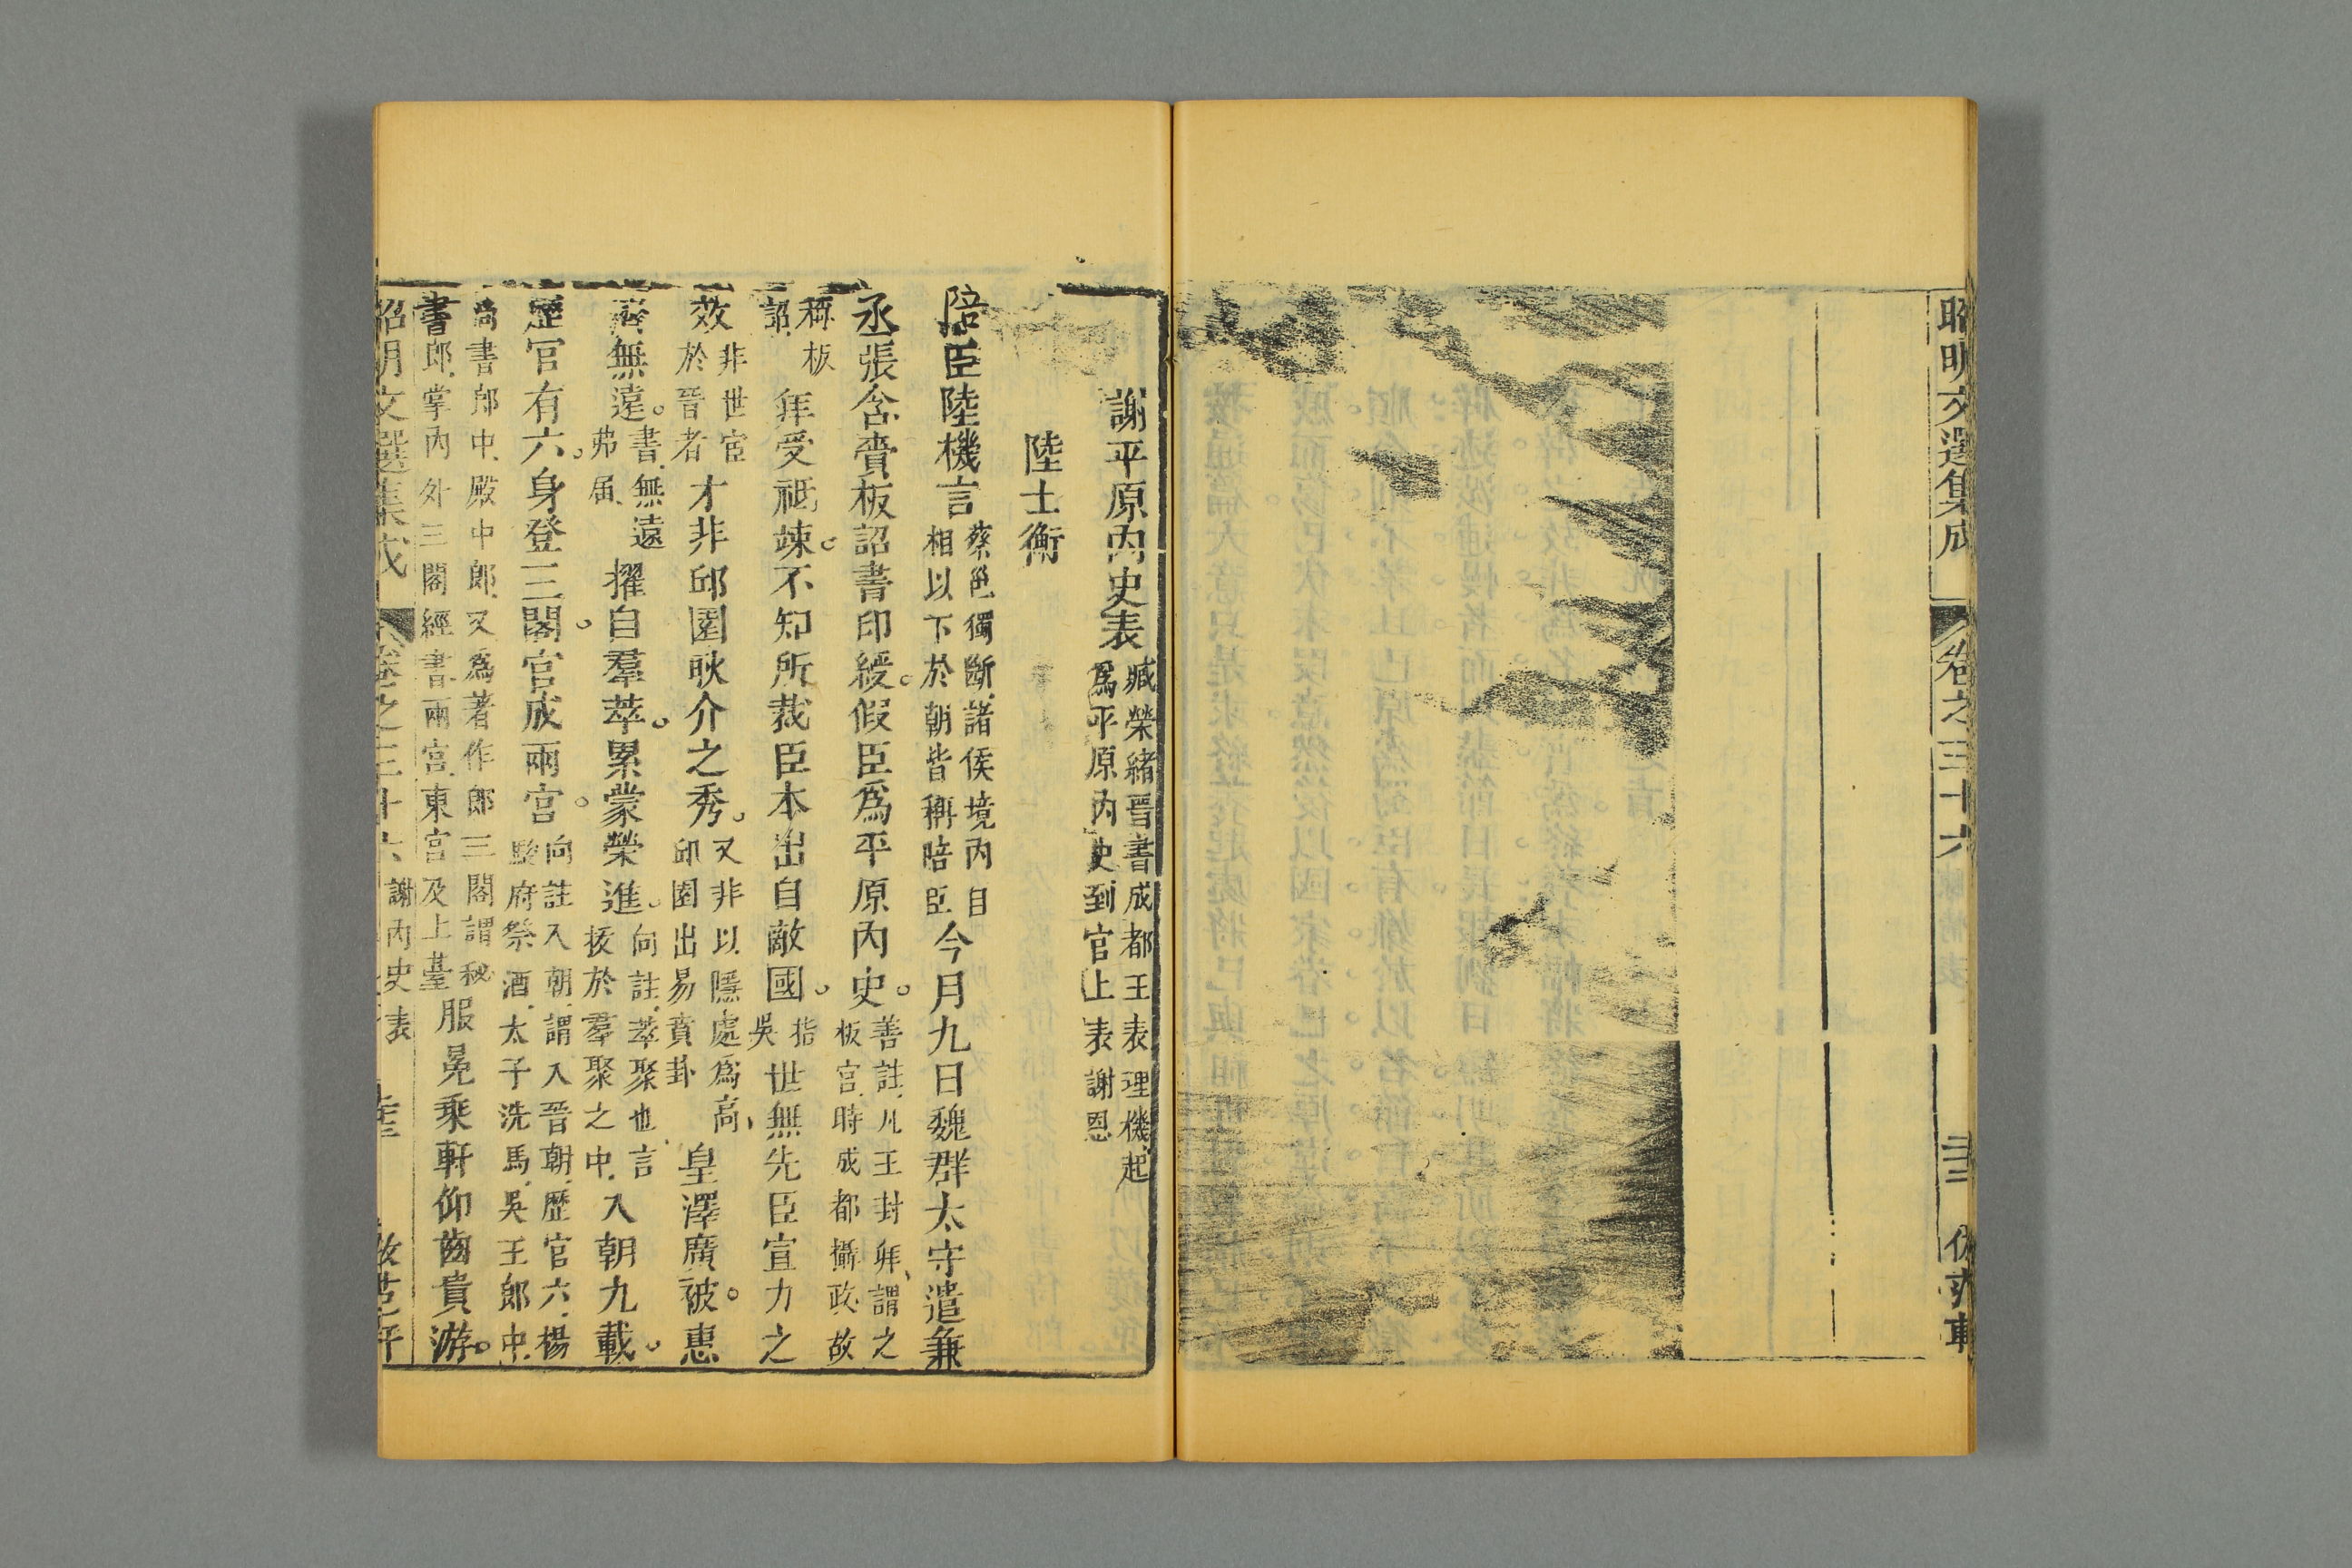 昭明文選集成 卷之三十六
謝平原內史表 臧榮緒晉書成都王表理機起為平原內史到官上表謝恩
陸士衡
陪臣陸機言 蔡邕獨斷諸侯境內自相以下於朝皆稱陪臣 今月九日魏群太守遣兼
丞張含齎板詔書印綬。假臣為平原內史。 善註凡王封拜謂之板官時成都攝政故
稱板詔 拜受祗竦。不知所裁臣本出自敵國。 指吳 世無先臣宣力之
效 非世官於晉者 才非邱園耿介之秀。 又非以隱處為高邱園出易賁卦 皇澤廣被。惠
濟無遠。 書無遠弗届 擢自羣萃。累蒙榮進。 向註萃聚也言拔於羣聚之中 入朝九載。
歷官有六。身登三閣。官成兩宮。 向註入朝謂入晉朝歷官六楊駿府祭酒太子洗馬吳王郎中
尚書郎中殿中郎又為著作郎三閣謂秘書郎掌內外三閣經書兩宮東宮及上臺 服冕乘軒仰齒貴游。
昭明文選集成 卷之三十六 謝內史表